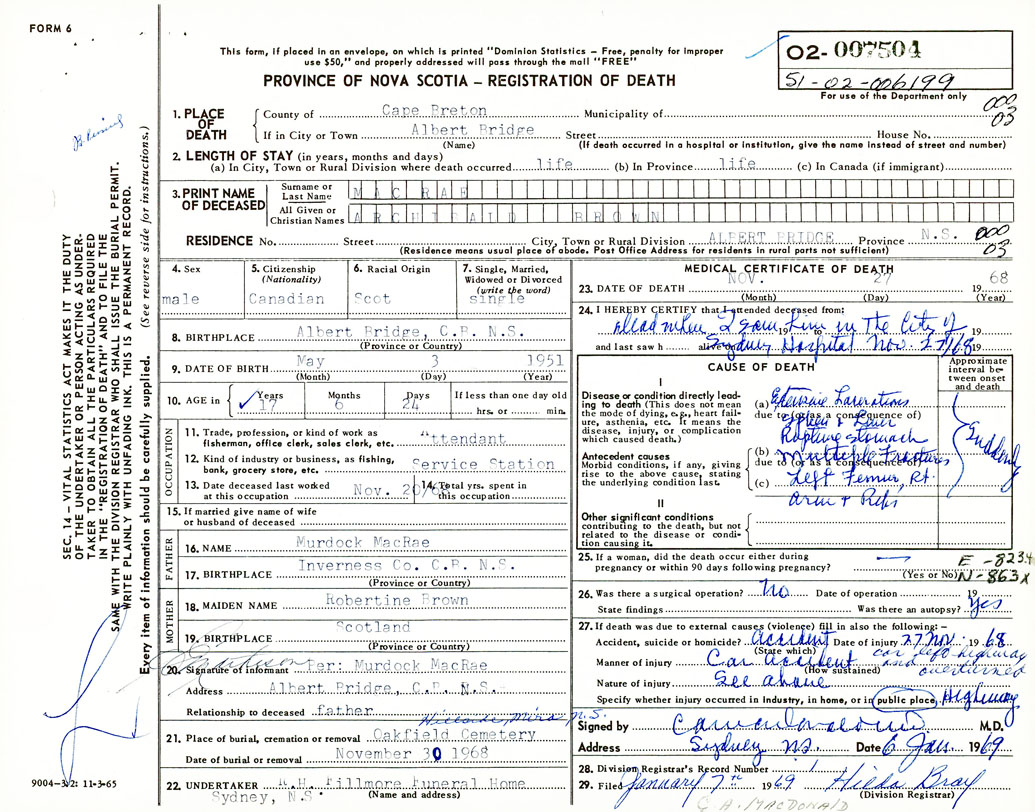 FORM 6
This form, if placed in an envelope, on which is printed "Dominion Statistics – Free, penalty for improper
use $50," and properly addressed will pass through the mail "FREE"
PROVINCE OF NOVA SCOTIA – REGISTRATION OF DEATH
02-007504
51-02-006199
For use of the Department only
000
03
1. PLACE OF DEATH
County of Cape Breton Municipality of
If in City or Town Albert Bridge Street House No.
(Name) (If death occurred in a hospital or institution, give the name instead of street and number)
2. LENGTH OF STAY (in years, months and days)
(a) In City, Town or Rural Division where death occurred life (b) In Province life (c) In Canada (if immigrant)
3. PRINT NAME OF DECEASED
Surname or Last Name MACRAE
All Given or Christian Names ARCHIBALD BROWN
RESIDENCE No. Street City, Town or Rural Division ALBERT BRIDGE Province N.S. 000
(Residence means usual place of abode. Post Office Address for residents in rural parts not sufficient) 03
4. Sex
male
5. Citizenship
(Nationality)
Canadian
6. Racial Origin
Scot
7. Single, Married,
Widowed or Divorced
(write the word)
single
8. BIRTHPLACE Albert Bridge, C.B. N.S.
(Province or Country)
9. DATE OF BIRTH May 3 1951
(Month) (Day) (Year)
10. AGE in Years Months Days If less than one day old
17 6 24 hrs. or min.
OCCUPATION
11. Trade, profession, or kind of work as
fisherman, office clerk, sales clerk, etc. Attendant
12. Kind of industry or business, as fishing,
bank, grocery store, etc. Service Station
13. Date deceased last worked
at this occupation Nov.
14. Total yrs. spent in
this occupation
15. If married give name of wife
or husband of deceased
FATHER
16. NAME Murdock MacRae
17. BIRTHPLACE Inverness Co. C.B. N.S.
(Province or Country)
MOTHER
18. MAIDEN NAME Robertine Brown
19. BIRTHPLACE Scotland
(Province or Country)
20. Signature of informant Per: Murdock MacRae
Address Albert Bridge, C.B. N.S.
Relationship to deceased father
Hillside, Mira, N.S.
21. Place of burial, cremation or removal Oakfield Cemetery
Date of burial or removal November 30 1968
22. UNDERTAKER R.H. Fillmore Funeral Home
Sydney, N.S. (Name and address)
MEDICAL CERTIFICATE OF DEATH
23. DATE OF DEATH NOV. 27 1968
(Month) (Day) (Year)
24. I HEREBY CERTIFY that I attended deceased from:
dead when I saw him in The City of 19
and last saw h alive Sydney Hospital Nov. 27/68 19
CAUSE OF DEATH
Approximate
interval be-
tween onset
and death
I
Disease or condition directly lead-
ing to death (This does not mean
the mode of dying, e.g., heart fail-
ure, asthenia, etc. It means the
disease, injury, or complication
which caused death.)
(a) Extensive Lacerations
due to (or as a consequence of)
Spleen & Liver
Rupture stomach
Suddenly
Antecedent causes
Morbid conditions, if any, giving
rise to the above cause, stating
the underlying condition last.
(b) Multiple Fractures
due to (or as a consequence of)
(c) Left Femur, Rt.
Arm & Ribs
II
Other significant conditions
contributing to the death, but not
related to the disease or condi-
tion causing it.
25. If a woman, did the death occur either during
pregnancy or within 90 days following pregnancy?
(Yes or No)
E-8234
N-863X
26. Was there a surgical operation? No Date of operation 19
State findings Was there an autopsy? Yes
27. If death was due to external causes (violence) fill in also the following:–
Accident, suicide or homicide? Accident Date of injury 27 Nov. 1968
(State which) car left highway
Manner of injury Car accident and overturned
(How sustained)
Nature of injury See above
Specify whether injury occurred in industry, in home, or in public place Highway
Signed by M.D.
Address Sydney NS. Date 6 Jan. 1969
28. Division Registrar's Record Number 1
29. Filed January 7th 1969 Hilda Bray
(Division Registrar)
C. A. MACDONALD
SEC. 14 – VITAL STATISTICS ACT MAKES IT THE DUTY
OF THE UNDERTAKER OR PERSON ACTING AS UNDER-
TAKER TO OBTAIN ALL THE PARTICULARS REQUIRED
IN THE "REGISTRATION OF DEATH" AND TO FILE THE
SAME WITH THE DIVISION REGISTRAR WHO SHALL ISSUE THE BURIAL PERMIT.
WRITE PLAINLY WITH UNFADING INK. THIS IS A PERMANENT RECORD.
Every item of information should be carefully supplied. (See reverse side for instructions.)
9004-3/2: 11-3-65